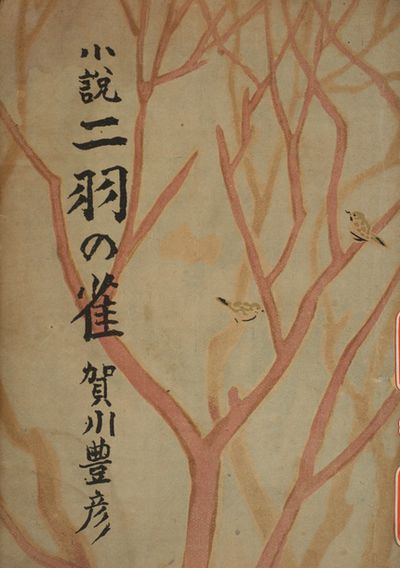 小説 二羽の雀 賀川豊彦